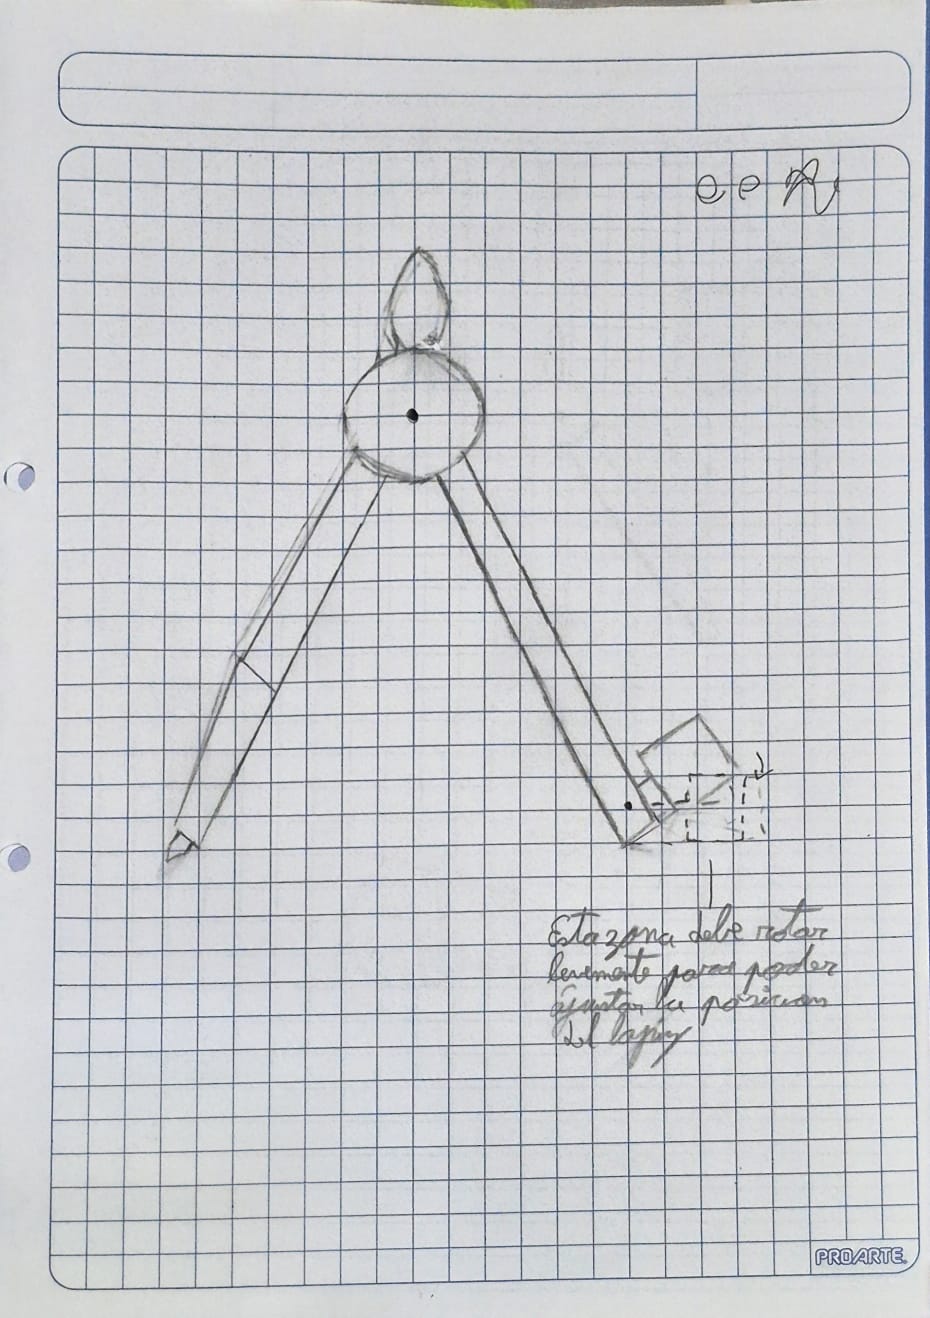 e e
Esta zona debe rotar
levemente para poder
ajustar la posicion
del lapiz
PROARTE